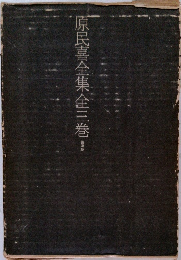 原民喜全集全三巻